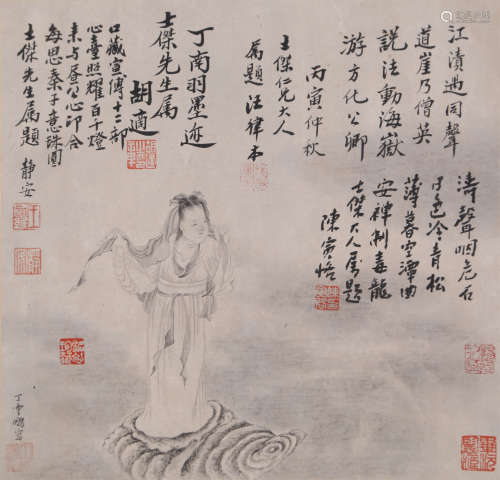 江濆遇同聲
道崖乃僧英
說法動海嶽
游方化公卿
丙寅仲秋
士傑仁兄大人
屬題 汪律本
丁南羽墨迹
士傑先生屬
胡適
口藏宣傳十二部
心臺照耀百千燈
未與晝公心印合
每思秦子意珠圓
士傑先生屬題 靜安
濤聲咽危石
日色冷青松
薄暮空潭曲
安禪制毒龍
士傑大人屬題
陳寅恪
丁雲鵬寫